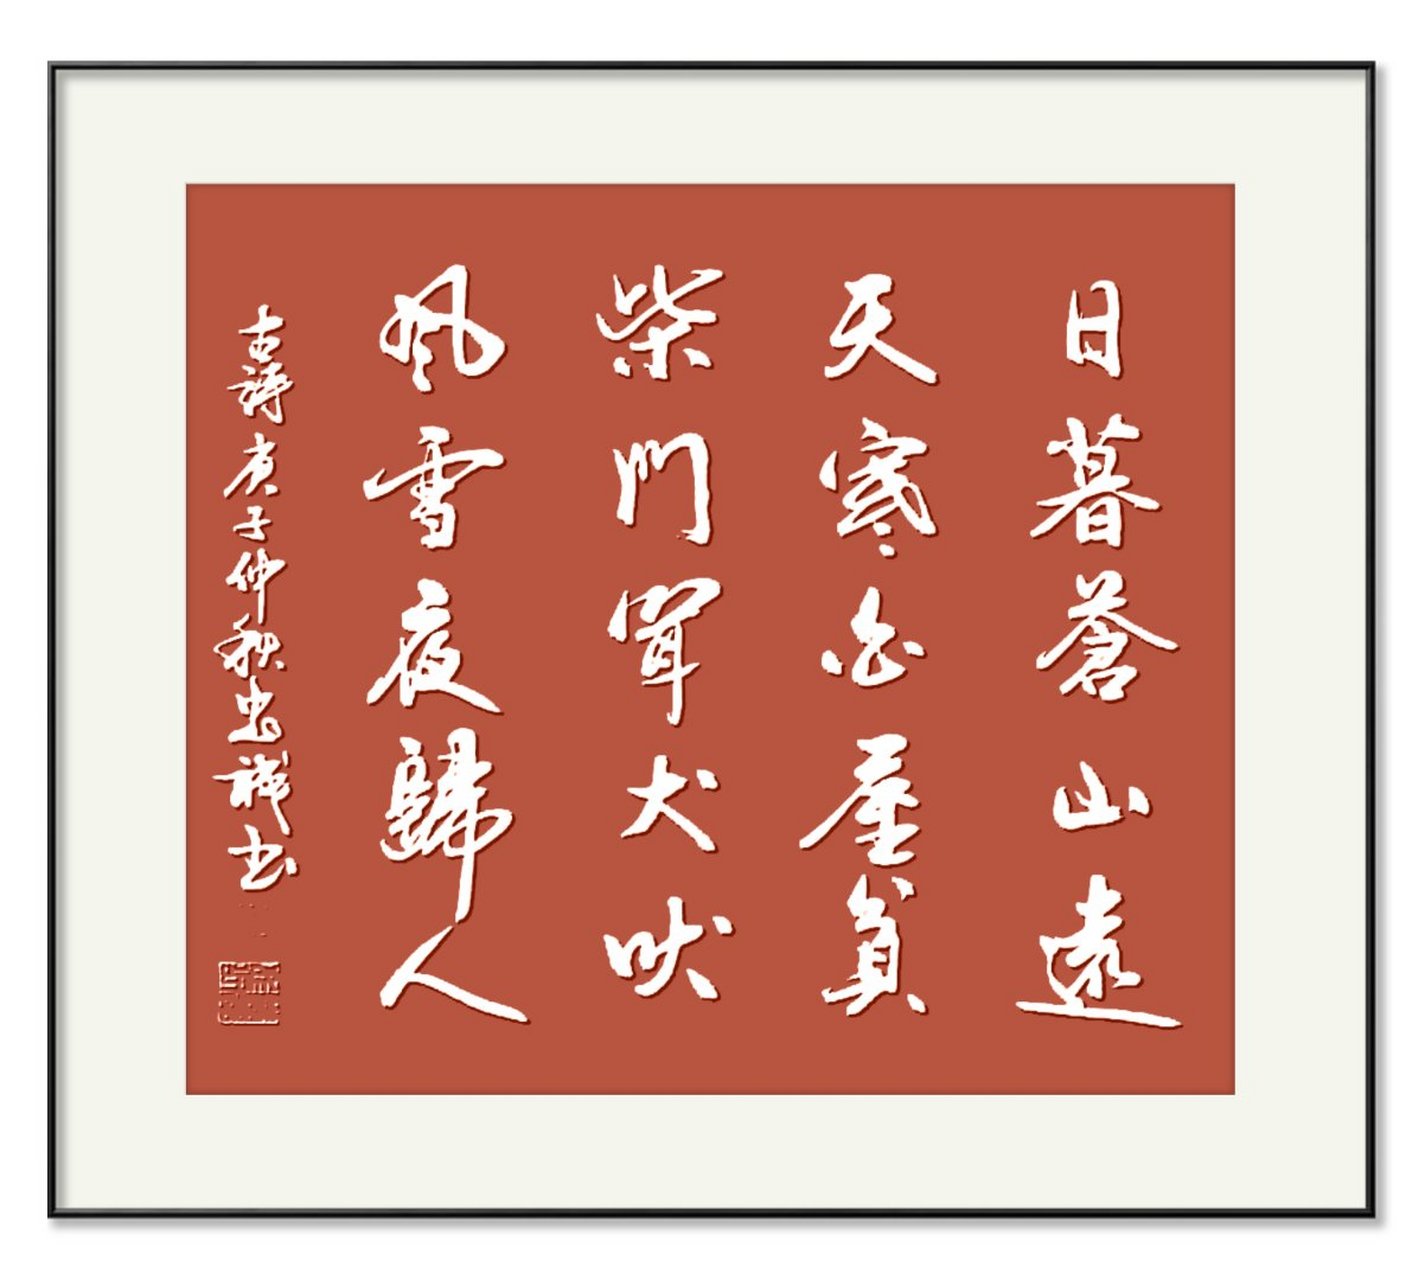 日暮蒼山遠
天寒白屋貧
柴門聞犬吠
風雪夜歸人
古詩庚子仲秋忠誠書